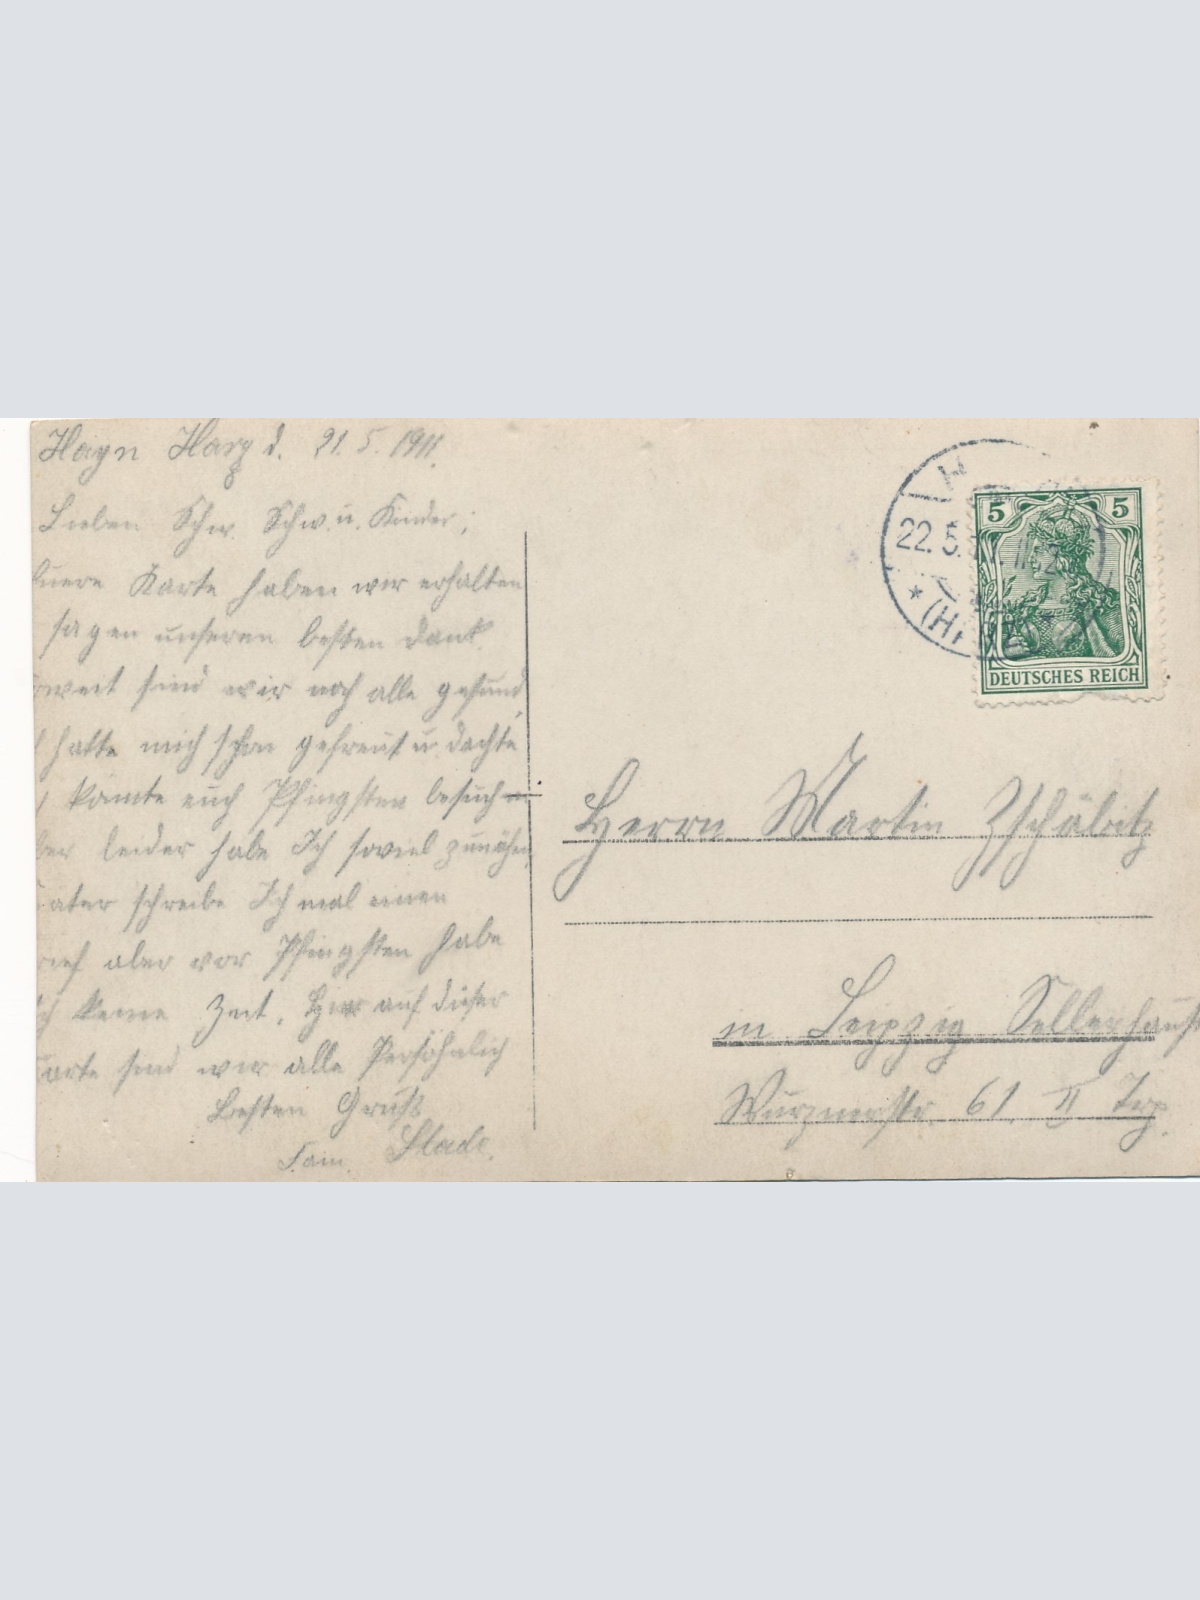 Hayn Harz d. 21. 5. 1911.
Lieben Schw. Schw. u. Kinder;
Karte haben wir erhalten
sagen unseren besten Dank.
sind wir noch alle gesund,
hatte mich schon gefreut u. dachte
könnte euch Pfingsten besuchen
leider habe Ich soviel zunähen,
schreibe Ich mal einen
aber vor Pfingsten habe
keine Zeit. Hier auf dieser
sind wir alle Persöhnlich
Besten Gruß
Fam. Stade.
22. 5.
5 5
DEUTSCHES REICH
Herrn Martin Zschäbitz
in Leipzig Sellerhaus
Wurznerstr. 61. II Trp.